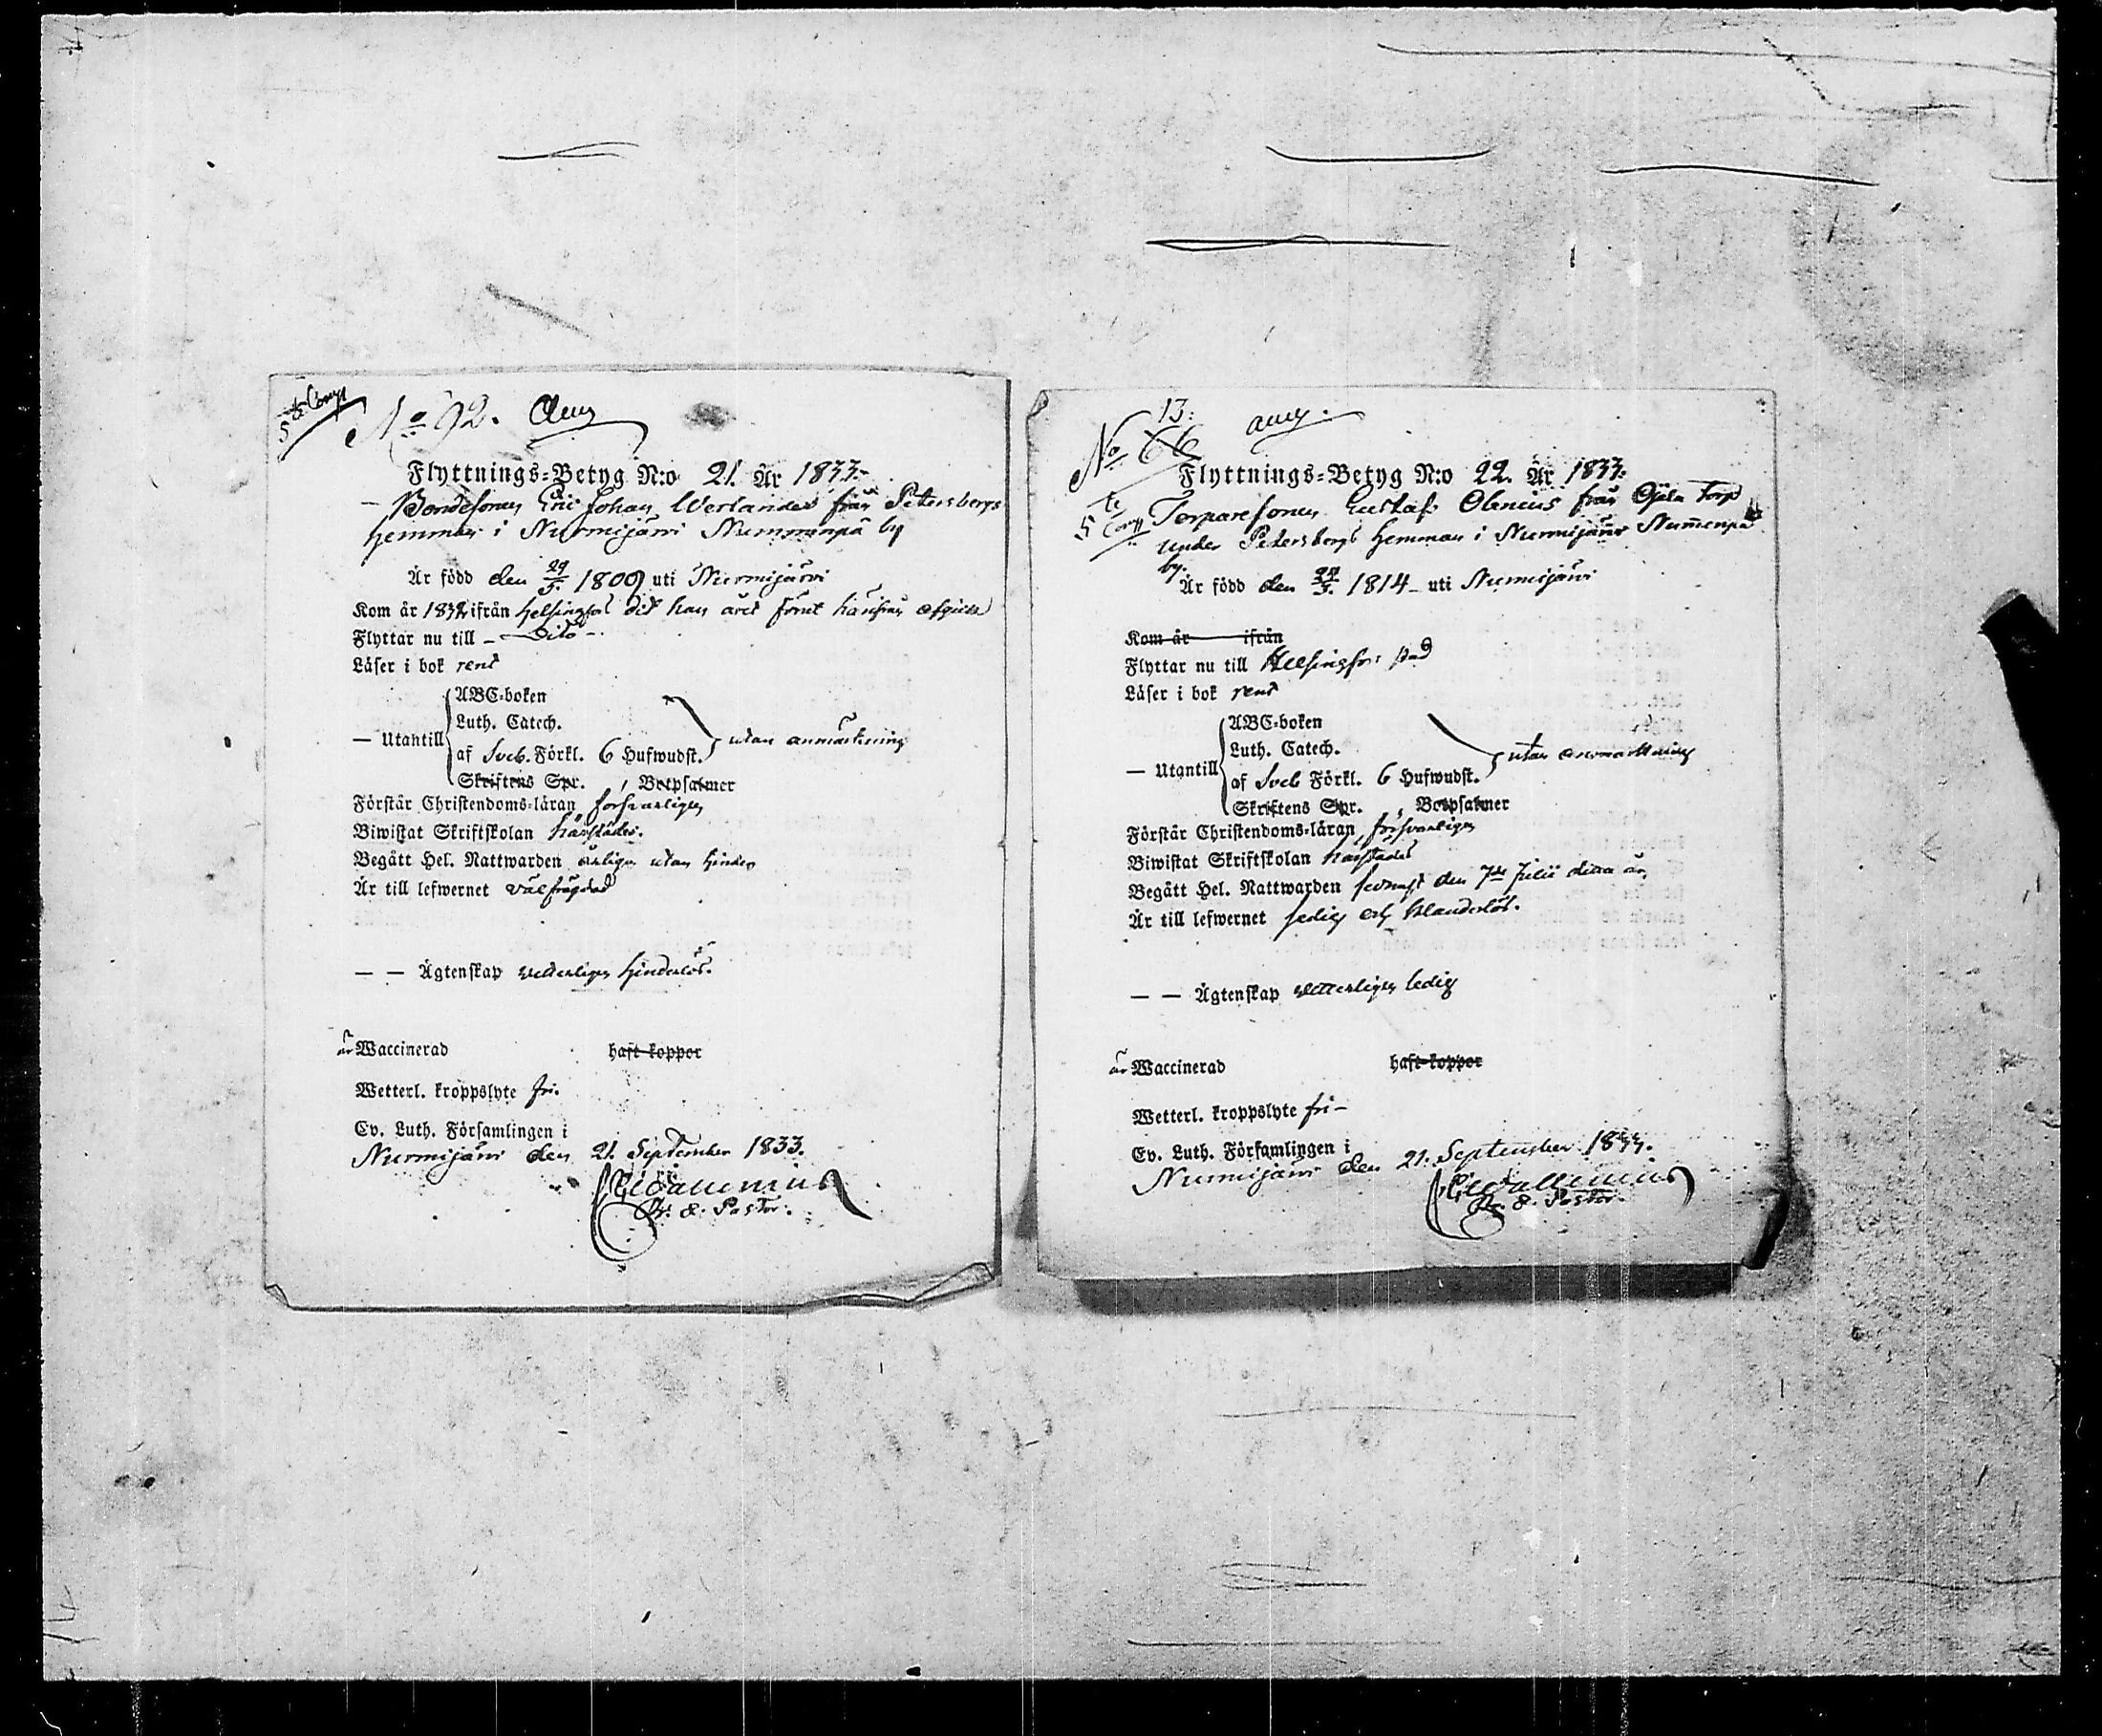 5te Comp
No 92.
Flyttnings-Betyg N:o 21. År 1833.
Bondesonen Eric Johan Werlander från Petersbergs
hemman i Nurmijärvi Nummenpä by
Är född den 29/5. 1809 uti Nurmijärvi
Kom år 1832 ifrån Helsingfors dit han året förut härifrån
Flyttar nu till – Dito –
Läser i bok rent
ABC-boken
Luth. Catech.
— Utantill
af Sveb. Förkl. 6 Hufwudst. utan anmärkning
Skriftens Spr. , Botpsalmer
Förstår Christendoms-läran försvarligen
Biwistat Skriftskolan härstädes.
Begått Hel. Nattwarden årligen utan hinder
Är till lefwernet välfrägdad
— — Ägtenskap vetterligen hinderlös.
är Waccinerad haft koppor
Wetterl. kroppslyte fri.
Ev. Luth. Församlingen i
Nurmijärvi den 21. September 1833.
Pastor.
13:
No 66
Flyttnings-Betyg N:o 22. År 1833:
5te Comp
Torparesonen Gustaf Olenius från Ojala Torp
under Petersbergs hemman i Nurmijärvi Nummenpä
by.
Är född den 1814 – uti Nurmijärvi
Kom år ifrån
Flyttar nu till Helsingfors stad
Läser i bok rent
ABC-boken
Luth. Catech.
— Utantill
af Sveb Förkl. 6 Hufwudst. utan anmärkning
Skriftens Spr. , Botpsalmer
Förstår Christendoms-läran försvarligen
Biwistat Skriftskolan härstädes
Begått Hel. Nattwarden sednast den 7de Julii detta år.
Är till lefwernet sedig och klanderlös.
— — Ägtenskap vetterligen ledig
är Waccinerad haft koppor
Wetterl. kroppslyte fri –
Ev. Luth. Församlingen i
Nurmijärvi den 21. September 1833.
Pastor.